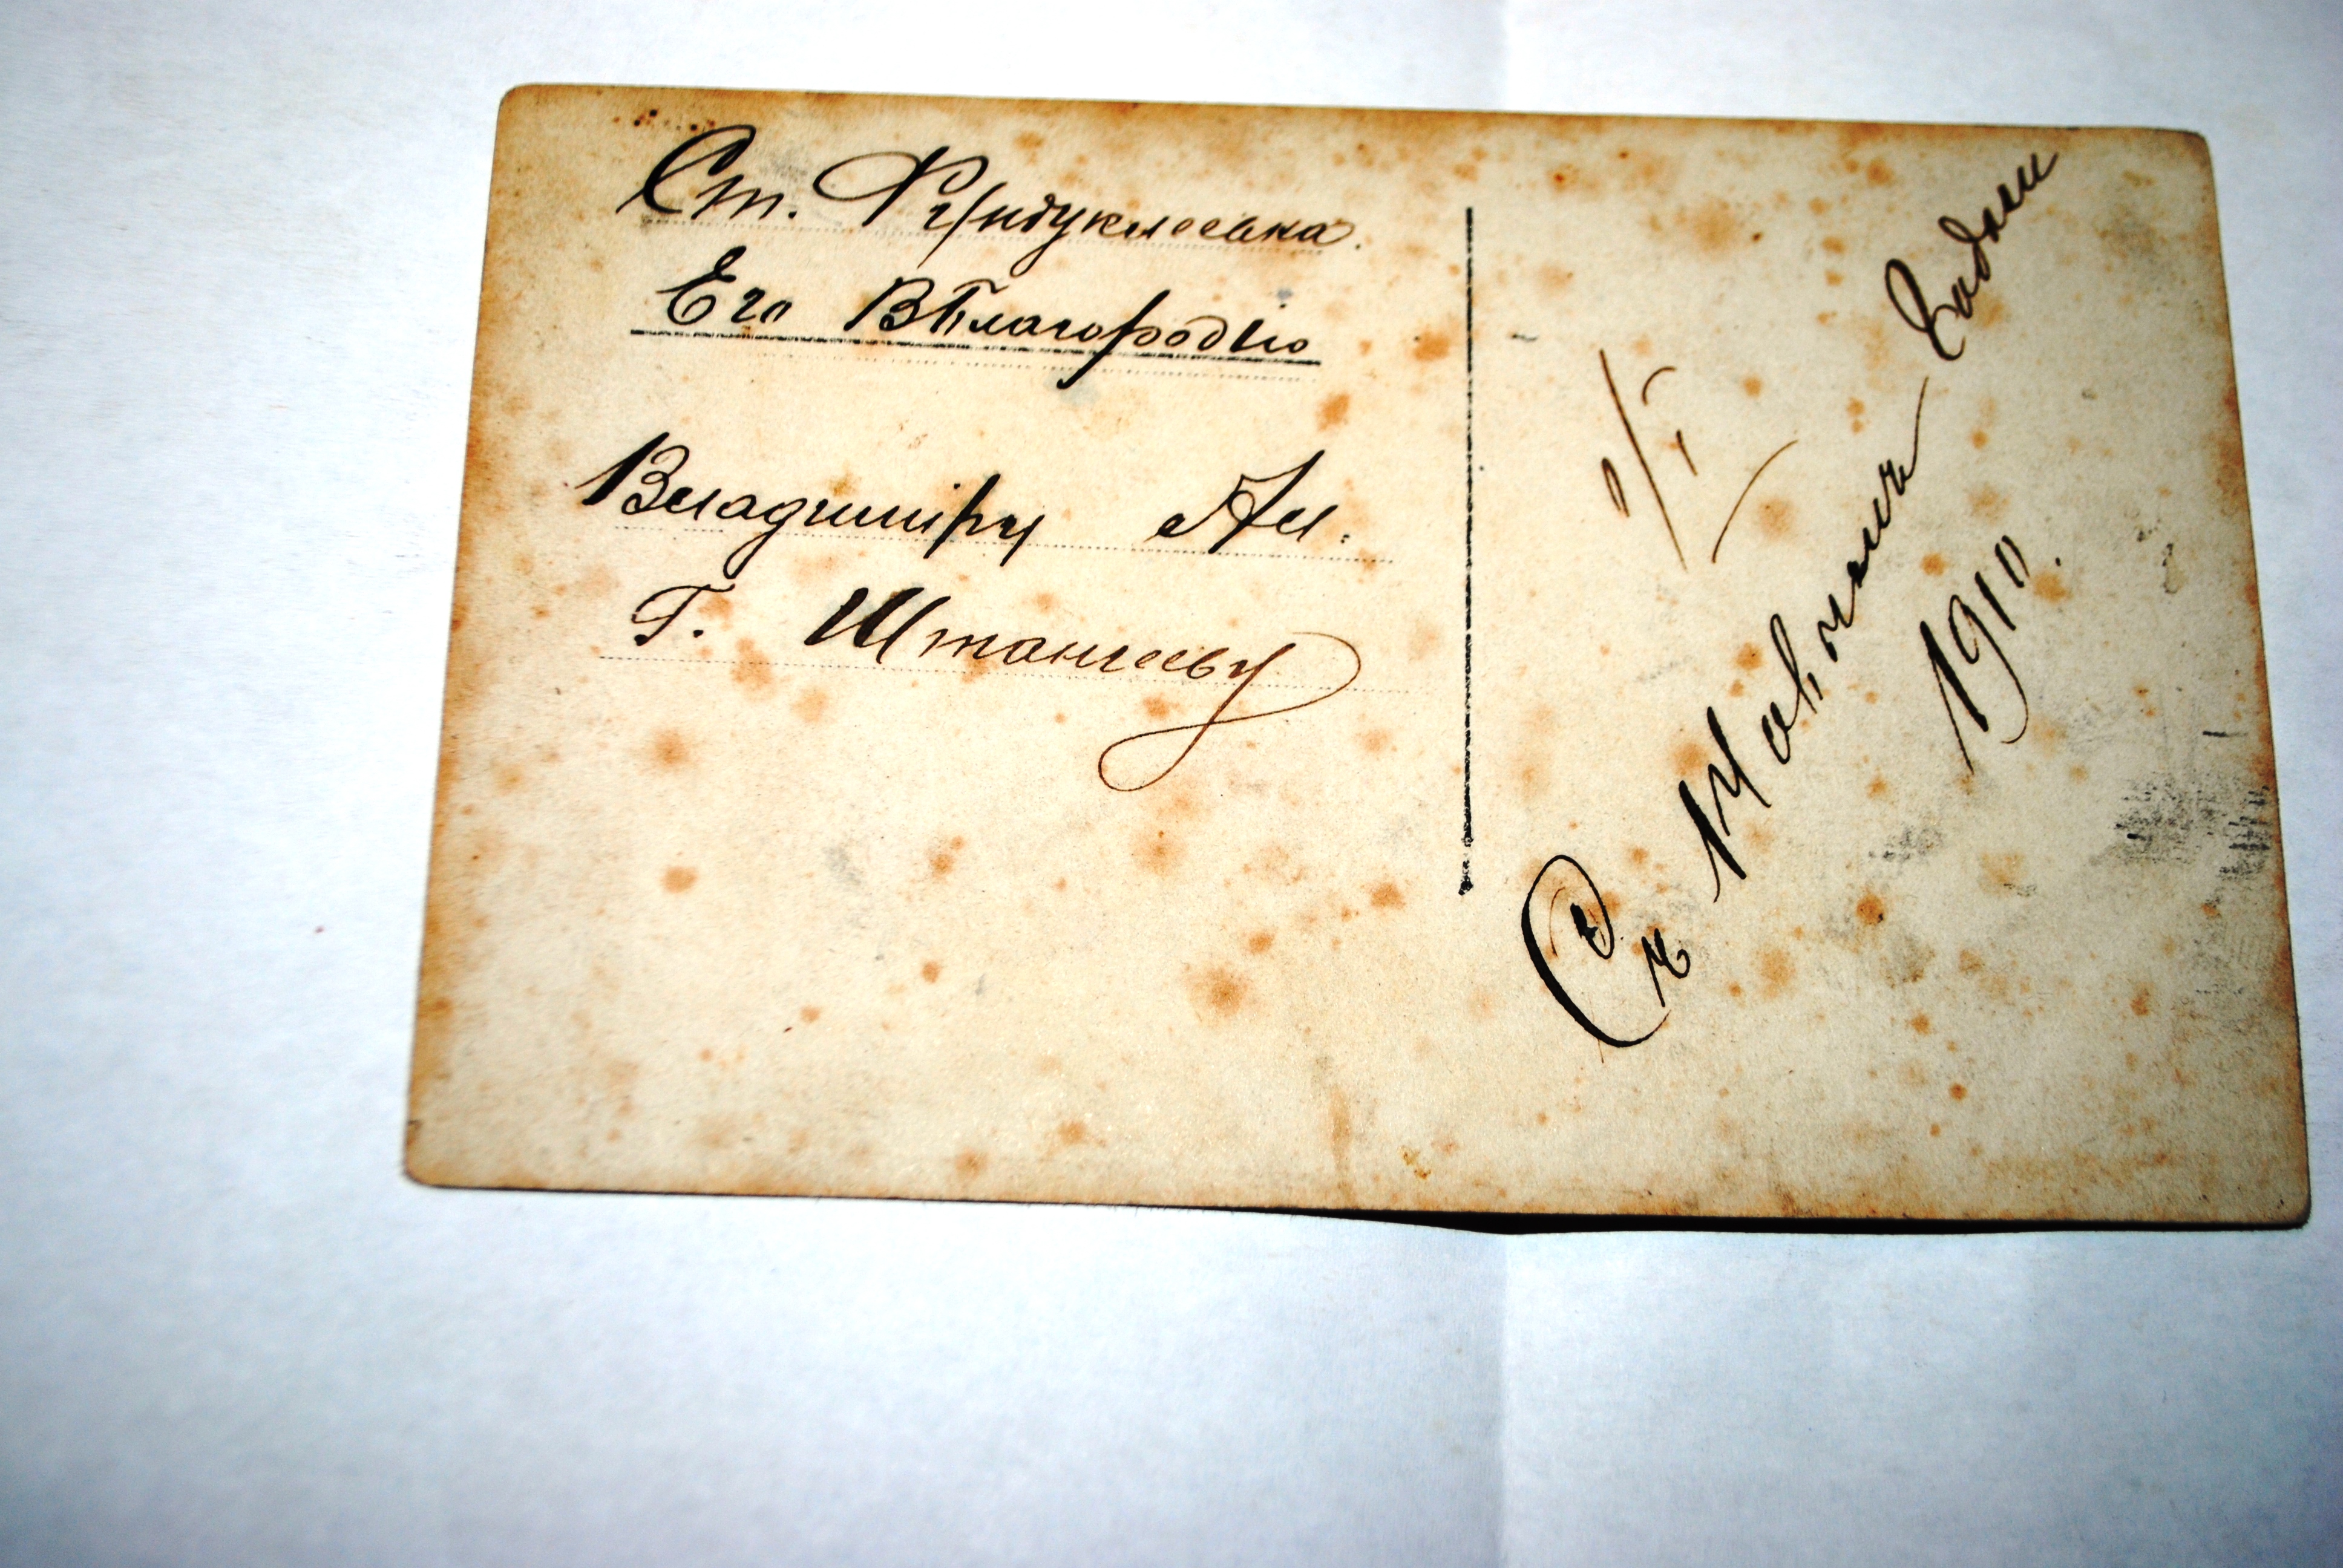 Ст. Фундуклеевка.
Его ВБлагородію
Владиміру Ал.
Г. Штангееву
1/I
Съ Новымъ Годом
1910.